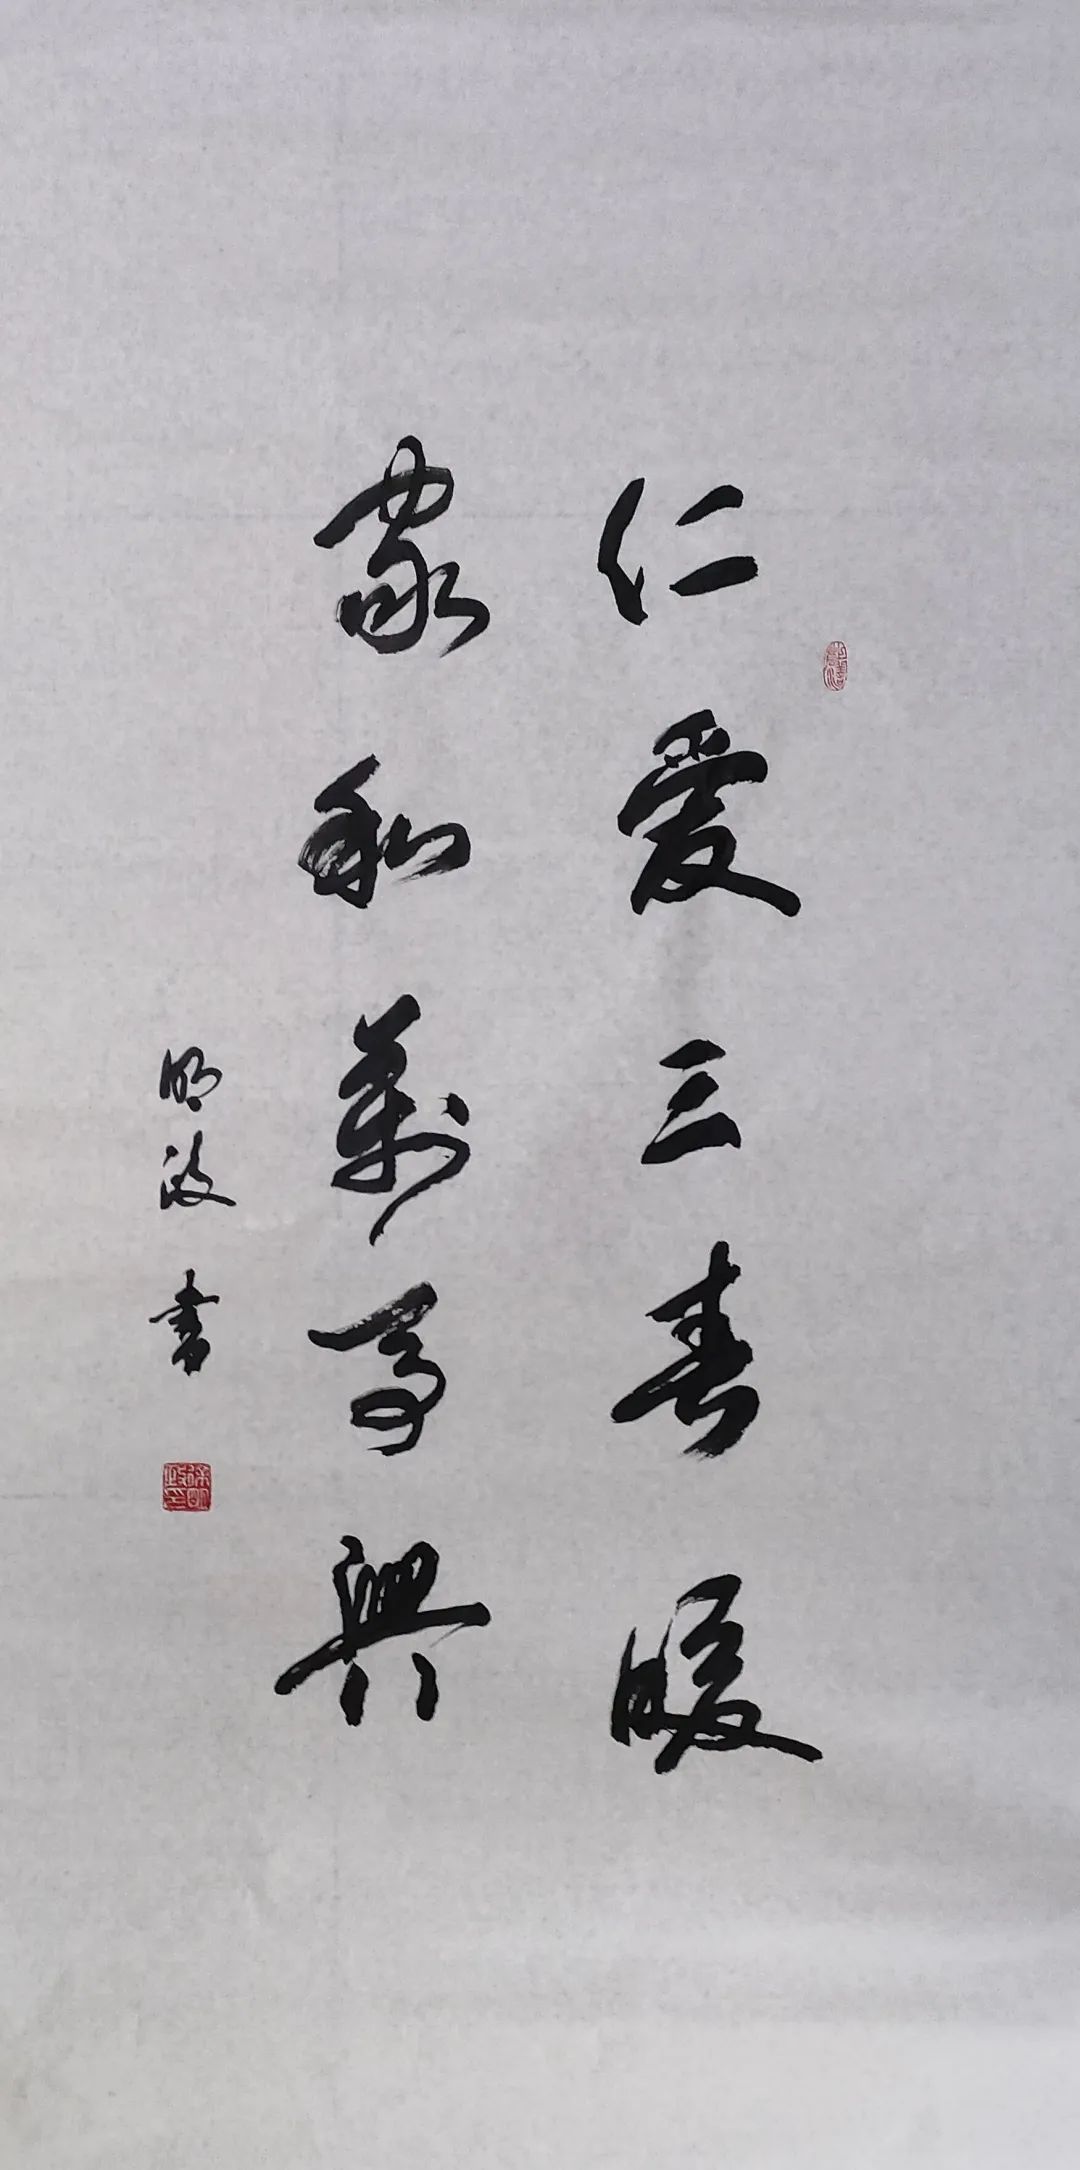 仁爱三春暖
家和萬事興
明政書